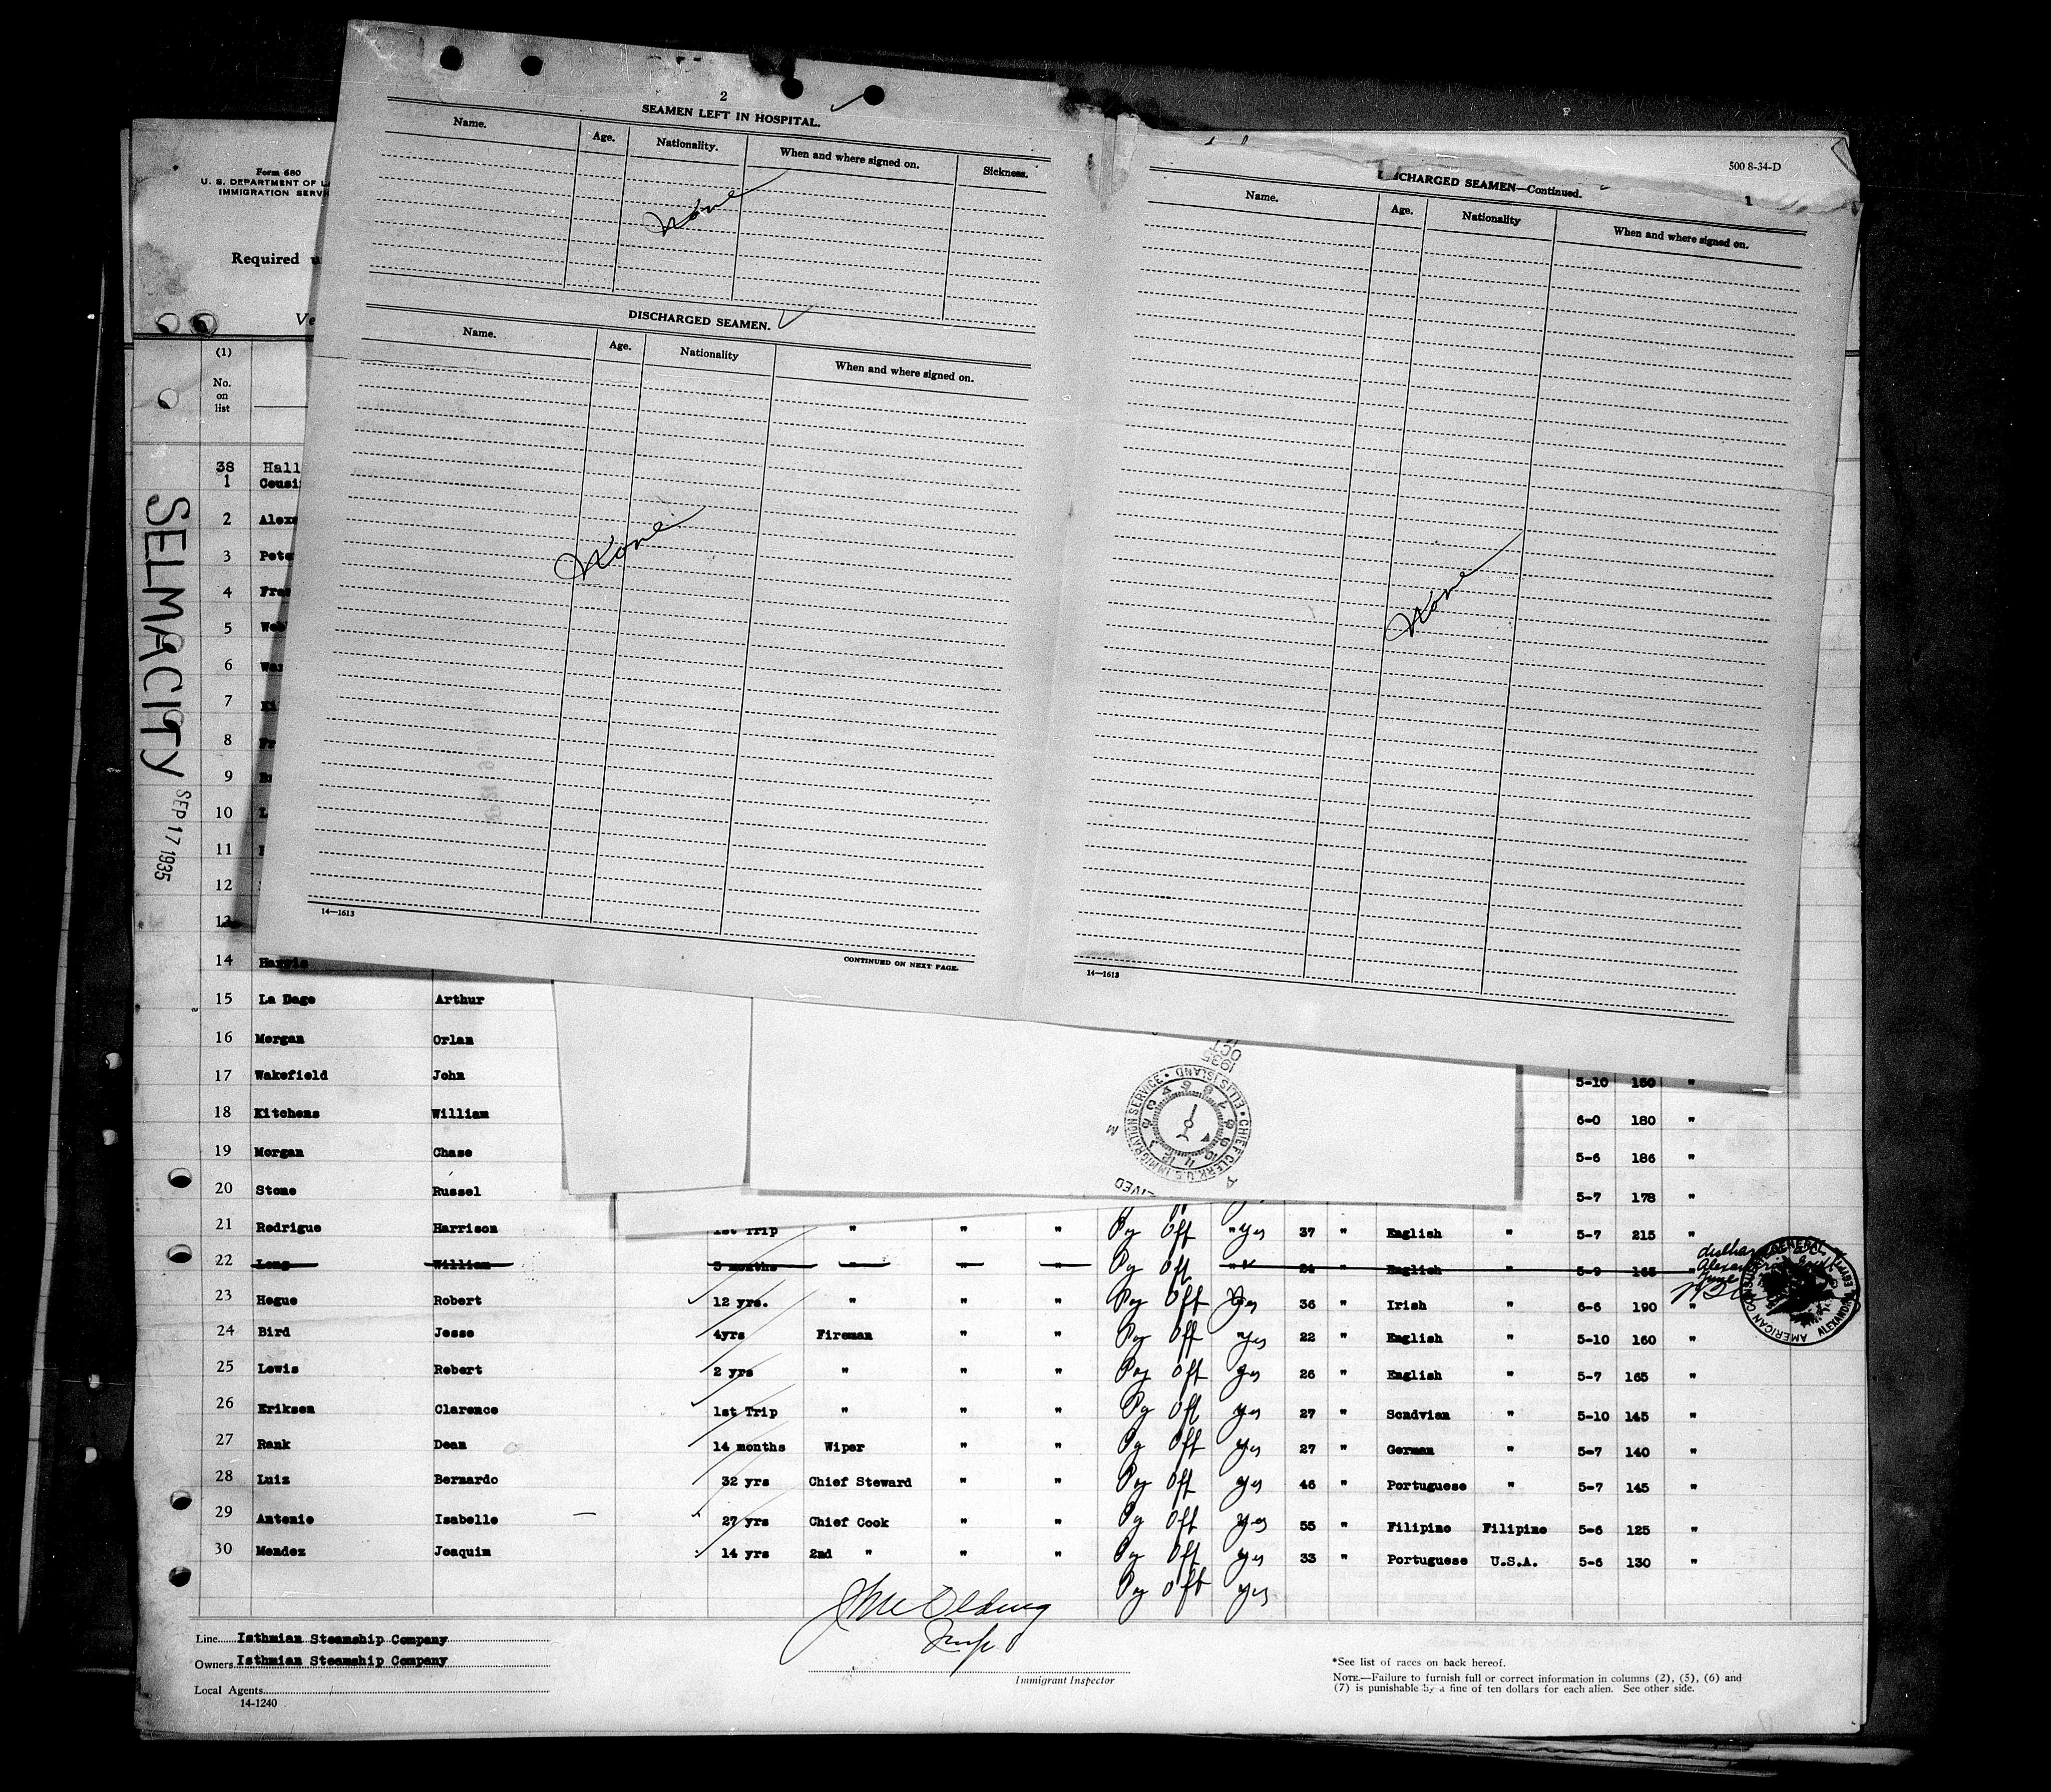 2
SEAMEN LEFT IN HOSPITAL.
Name. Age. Nationality. When and where signed on. Sickness.
None
DISCHARGED SEAMEN.
Name. Age. Nationality When and where signed on.
None
14—1613
CONTINUED ON NEXT PAGE.
500 8-34-D
CHARGED SEAMEN—Continued.
Name. Age. Nationality When and where signed on.
None
14—1613
Form 680
U. S. DEPARTMENT OF
IMMIGRATION SERV
Required
(1)
No.
on
list
SELMACITY
SEP 17 1935
38 Hall
1
2
3
4
5
6
7
8
9
10
11
12
13
14 Harvie
15 La Dage Arthur
16 Morgan Orlan
17 Wakefield John 5-10 150 "
18 Kitchens William 6-0 180 "
19 Morgan Chase 5-6 186 "
20 Stone Russel 5-7 178 "
21 Redrigue Harrison 1st Trip " " " Pg Off " yes 37 " English " 5-7 215 "
22 Long William 3 months " " " Pg Off 24 English 5-9 165
23 Hogue Robert 12 yrs. " " " Pg Off yes 36 " Irish " 6-6 190 "
24 Bird Jesse 4yrs Fireman " " Pg Off yes 22 " English " 5-10 160 "
25 Lewis Robert 2 yrs " " " Pg Off yes 26 " English " 5-7 165 "
26 Eriksen Clarence 1st Trip " " " Pg Off yes 27 " Scndvian " 5-10 145 "
27 Rank Dean 14 months Wiper " " Pg Off yes 27 " German " 5-7 140 "
28 Luiz Bernardo 32 yrs Chief Steward " " Pg Off yes 46 " Portuguese " 5-7 145 "
29 Antonio Isabelle 27 yrs Chief Cook " " Pg Off yes 55 " Filipino Filipino 5-6 125 "
30 Mendez Joaquim 14 yrs 2nd " " " Pg Off yes 33 " Portuguese U.S.A. 5-6 130 "
Pg Off yes
CHIEF CLERK U.S. IMMIGRATION SERVICE • ELLIS ISLAND •
AMERICAN CONSULATE GENERAL
Line Isthmian Steamship Company
Owners Isthmian Steamship Company
Local Agents
14-1240
Immigrant Inspector
*See list of races on back hereof.
NOTE.—Failure to furnish full or correct information in columns (2), (5), (6) and
(7) is punishable by a fine of ten dollars for each alien. See other side.